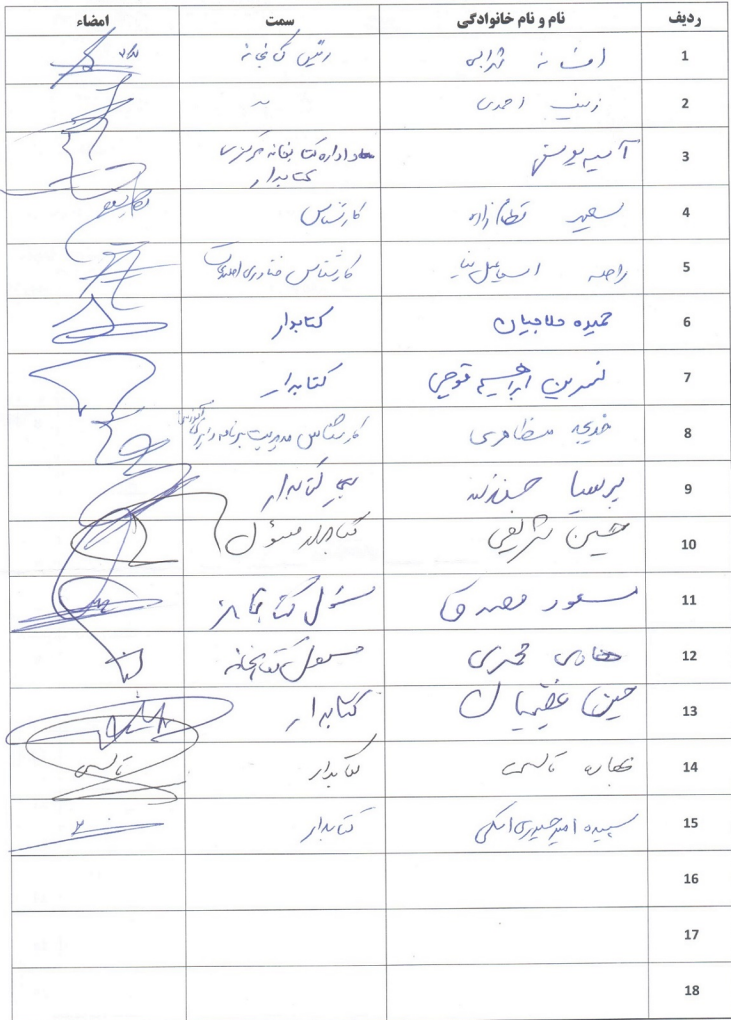 ردیف نام و نام خانوادگی سمت امضاء
1 افسانه ترابی رئیس کتابخانه
2 زینب احمدی "
3 آسیه اداره کتابخانه مرکزی
کتابدار
4 سعید کارشناس
5 راضیه اسماعیل نیا کارشناس فناوری اطلاعات
6 حمیده حلاجیان کتابدار
7 نسرین ابراهیم قوچی کتابدار
8 خدیجه مظاهری کارشناس مدیریت برنامه ریزی آموزشی
9 پرسیا کتابدار
10 حسین شریفی کتابدار مسئول
11 مسعود مصدق مسئول کتابخانه
12 هادی محمدی مسئول کتابخانه
13 حسین عظیمیان کتابدار
14 بهاره کتابدار
15 سپیده امیرحیدری کتابدار
16
17
18